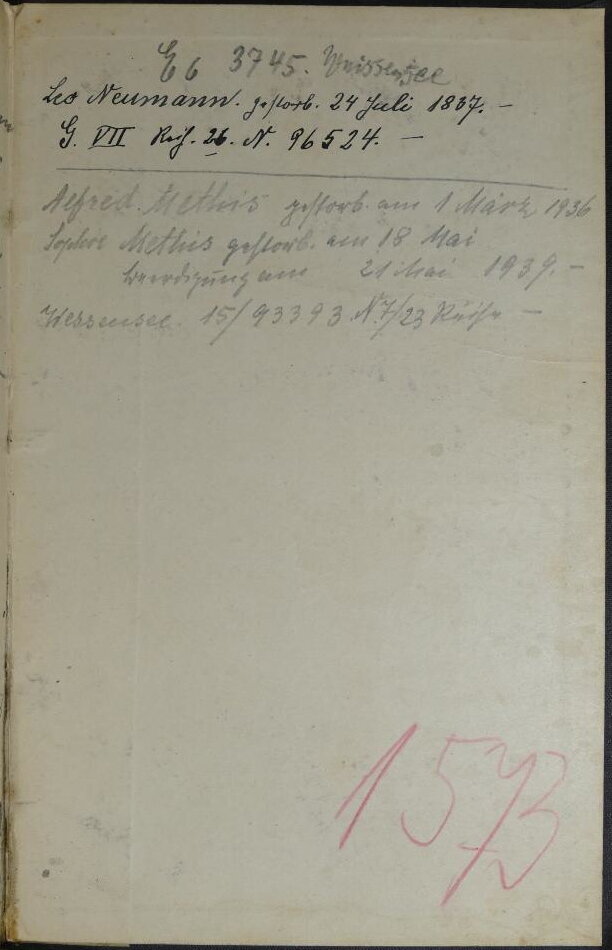 E6 3745. Weissensee
Leo Neumann. gestorb. 24 Juli 1837. –
G. VII Reih. 26. N. 96524. –
Alfred Methis gestorb. am 1 März 1936
Sophie Methis gestorb. am 18 Mai
beerdigung am 21 Mai 1939. –
Weissensee. 15/93393. N. 7/23 Reihe –
15B